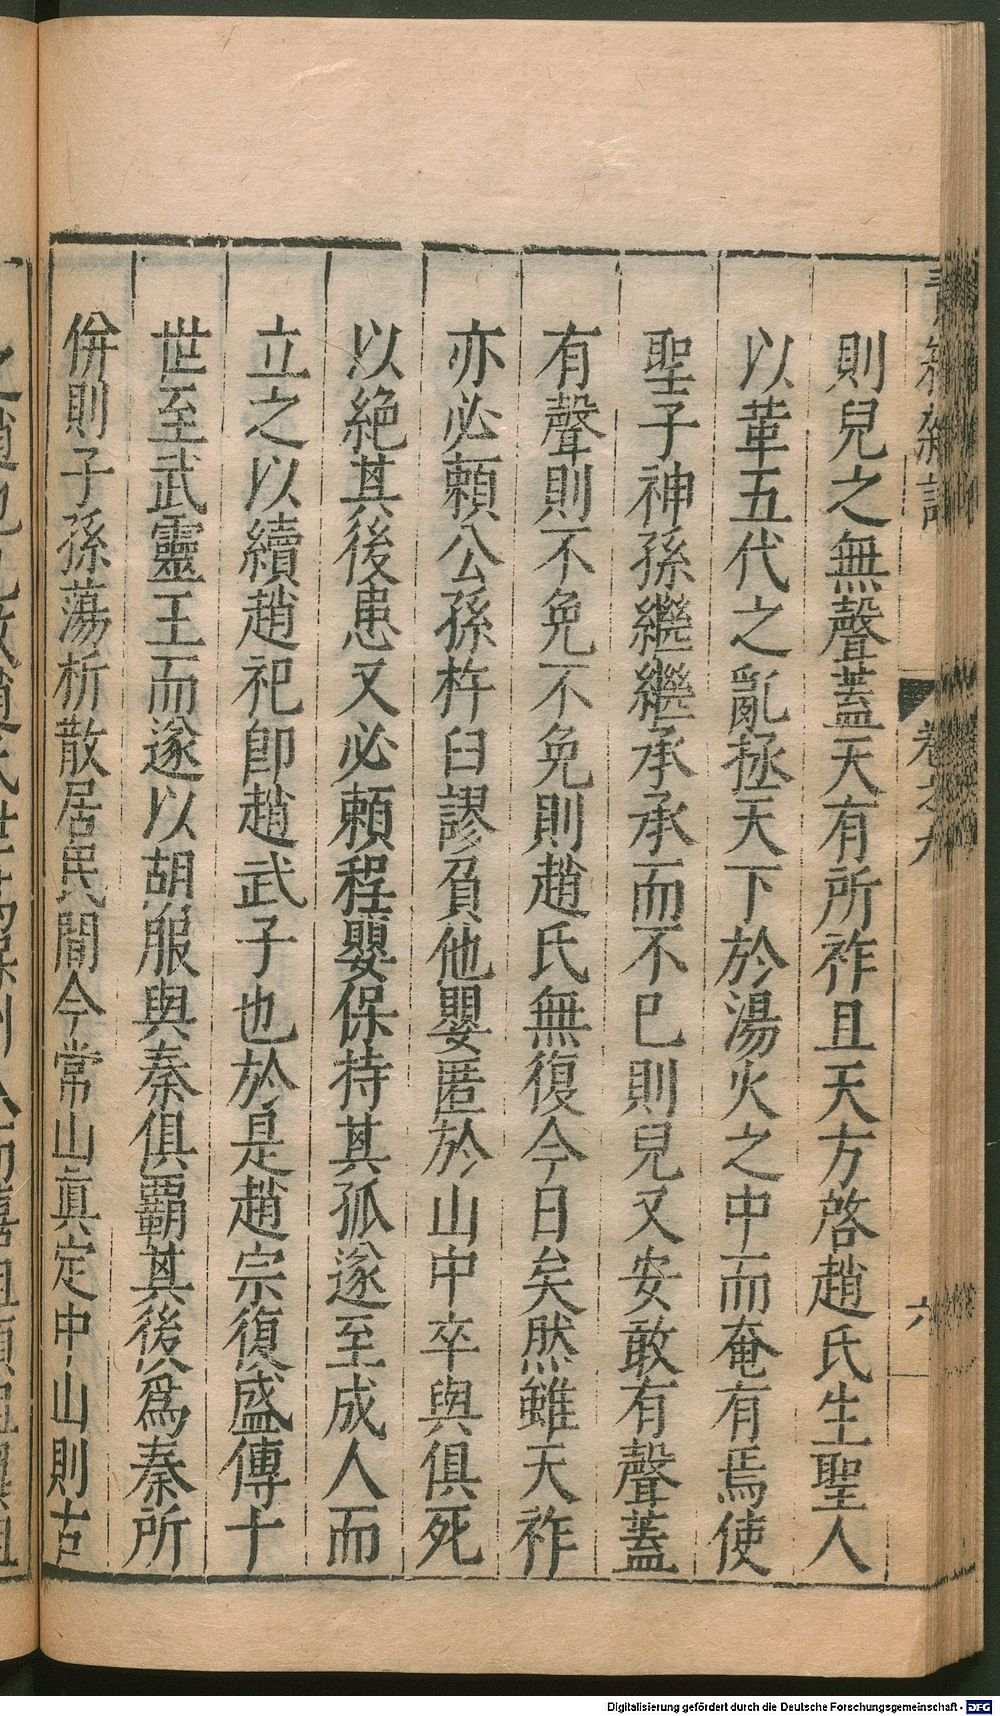 則兒之無聲蓋天有所祚且天方啓趙氏生聖人
以葷五代之亂拯天下於湯火之中而奄有焉使
聖子神孫繼繼承承而不已則兒又安敢有聲蓋
有聲則不免不免則趙氏無復今日矣然雖天祚
亦必頼公孫杵臼謬負他嬰匿於山中卒與俱死
以絶其後患又必頼程嬰保持其孤遂至成人而
立之以續趙祀即趙武子也於是趙宗復盛傳十
世至武靈王而遂以胡服與秦俱覇其後爲秦所
併則子孫蕩析散居民間今常山眞定中山則古
卷之九
六
Digitalisierung gefördert durch die Deutsche Forschungsgemeinschaft - DFG